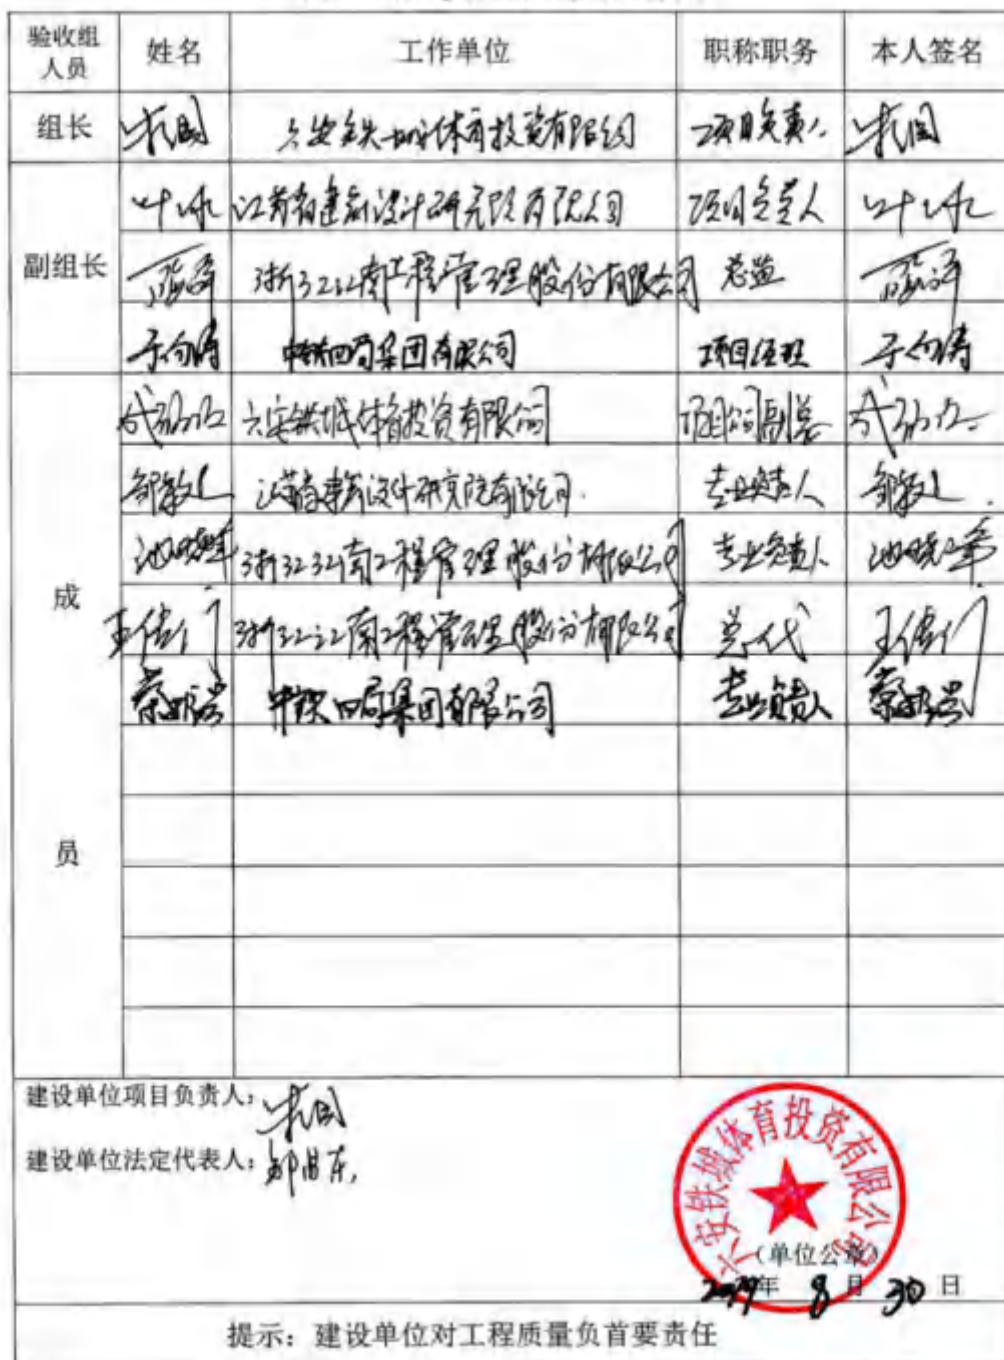 验收组人员 姓名 工作单位 职称职务 本人签名
组长 六安铁城体育投资有限公司 项目负责人
叶冰 江苏省建筑设计研究院有限公司 项目负责人 叶冰
副组长 浙江江南工程管理股份有限公司 总监
于向涛 中铁四局集团有限公司 项目经理 于向涛
六安铁城体育投资有限公司 项目公司副总
邹敏 江苏省建筑设计研究院有限公司 专业负责人 邹敏
池晓军 浙江江南工程管理股份有限公司 专业负责人 池晓军
浙江江南工程管理股份有限公司 总代
中铁四局集团有限公司 专业负责人
成
员
建设单位项目负责人:
建设单位法定代表人:
六安铁城体育投资有限公司
(单位公章)
年 8 月 30 日
提示:建设单位对工程质量负首要责任